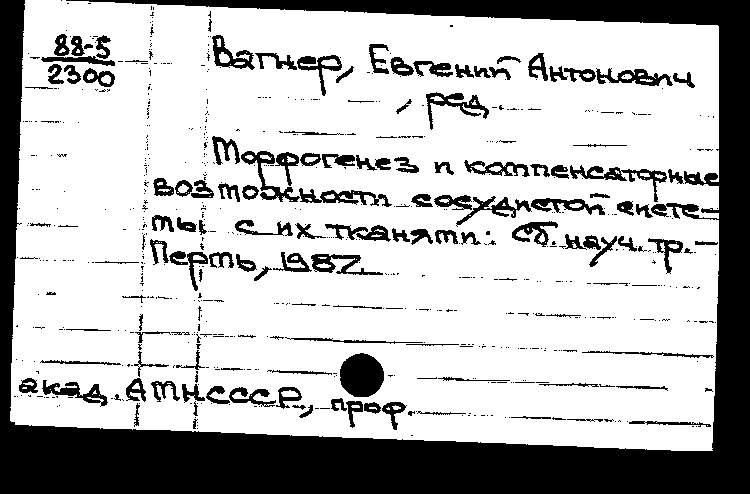 88-5
2300
Вагнер, Евгений Антонович
, ред
Морфогенез и компенсаторные
возможности сосудистой систе-
мы с их тканями: Сб. науч. тр.-
Пермь, 1987.
акад. АМНСССР, проф.